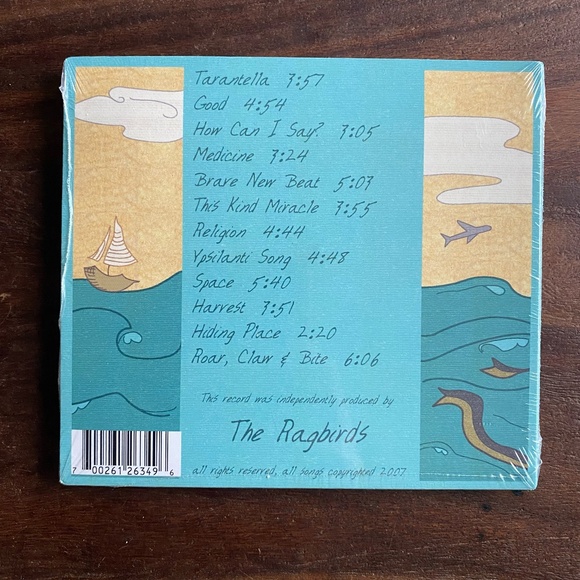 Tarantella 3:57
Good 4:54
How Can I Say? 3:05
Medicine 3:24
Brave New Beat 5:03
This Kind Miracle 3:55
Religion 4:44
Ypsilanti Song 4:48
Space 5:40
Harvest 3:51
Hiding Place 2:20
Roar, Claw & Bite 6:06
This record was independently produced by
The Ragbirds
all rights reserved, all songs copyrighted 2007
7 00261 26349 6